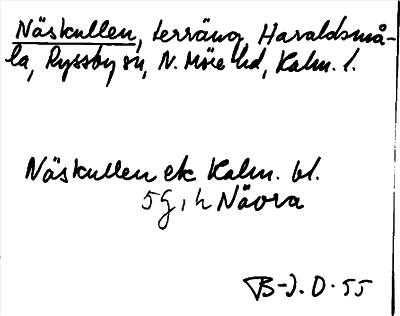 Näskullen, terräng Haraldsmå-
la, Ryssby sn, N. Möre hd, Kalm. l.
Näskullen ek Kalm. bl.
5 g, h Nävra
B-J. D. 55